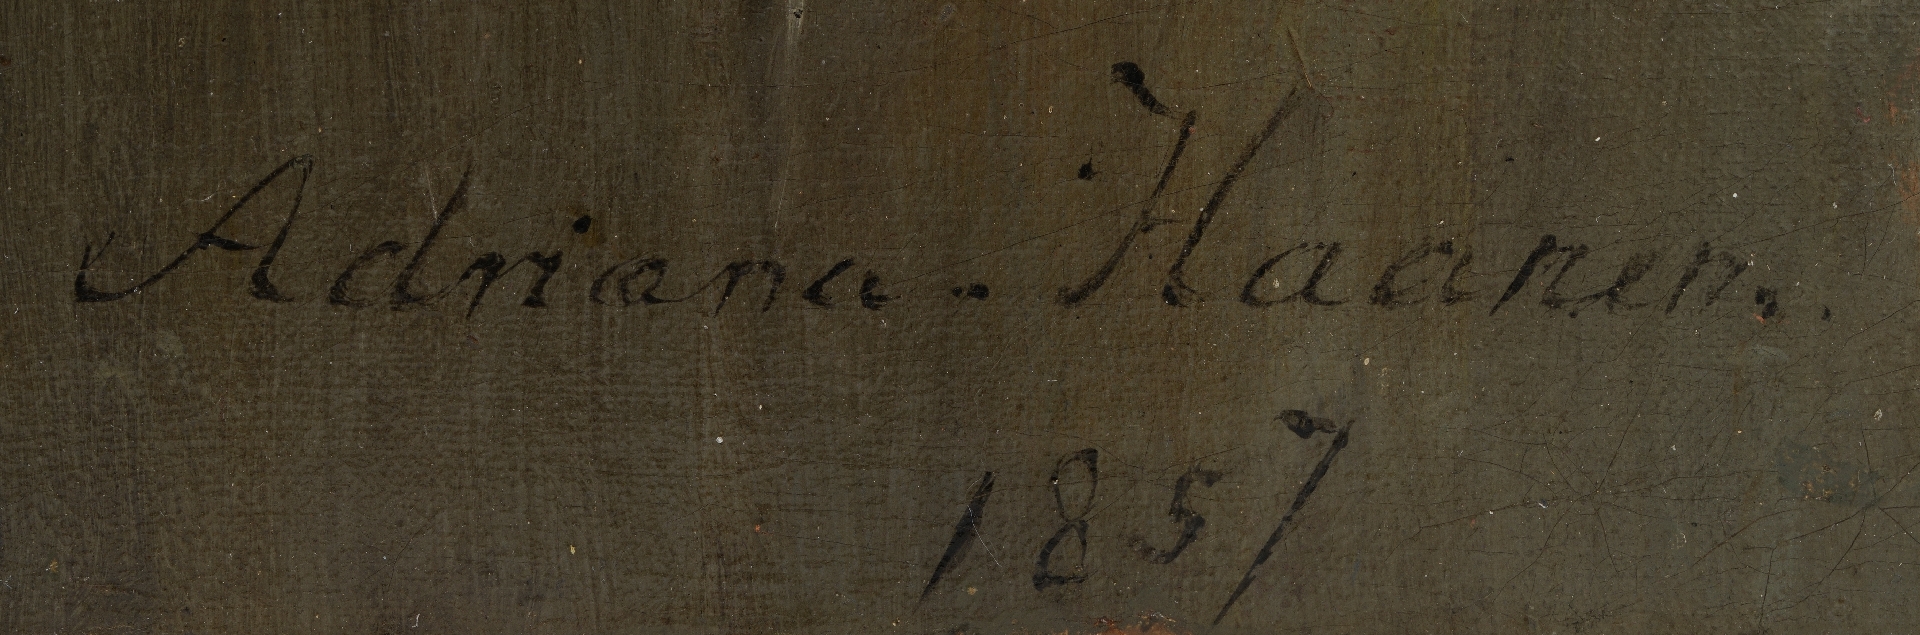 Adriana. Haanen.
1857